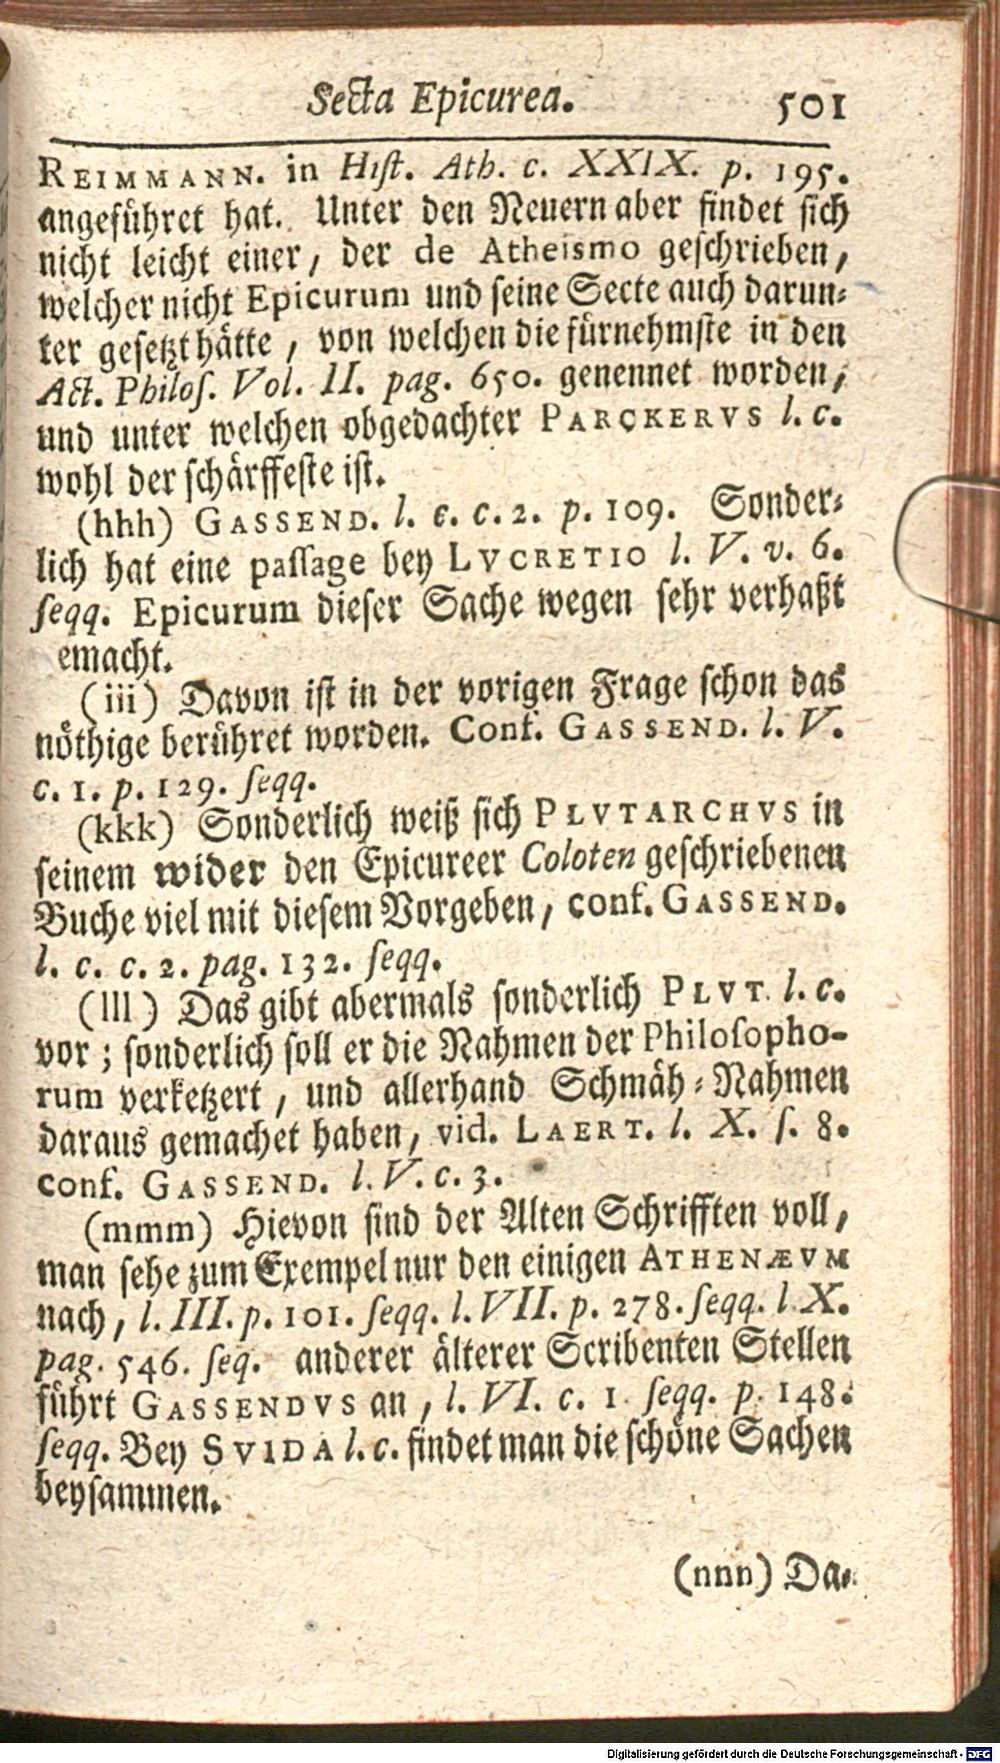 Secta Epicurea. 501
REIMMANN. in Hist. Ath. c. XXIX. p. 195.
angeführet hat. Unter den Neuern aber findet sich
nicht leicht einer, der de Atheismo geschrieben,
welcher nicht Epicurum und seine Secte auch darun-
ter gesetzt hätte, von welchen die fürnehmste in den
Act. Philos. Vol. II. pag. 650. genennet worden,
und unter welchen obgedachter PARCKERVS l. c.
wohl der schärffeste ist.
(hhh) GASSEND. l. c. c. 2. p. 109. Sonder-
lich hat eine passage bey LVCRETIO l. V. v. 6.
seqq. Epicurum dieser Sache wegen sehr verhaßt
emacht.
(iii) Davon ist in der vorigen Frage schon das
nöthige berühret worden. Conf. GASSEND. l. V.
c. 1. p. 129. seqq.
(kkk) Sonderlich weiß sich PLVTARCHVS in
seinem wider den Epicureer Coloten geschriebenen
Buche viel mit diesem Vorgeben, conf. GASSEND.
l. c. c. 2. pag. 132. seqq.
(lll) Das gibt abermals sonderlich PLVT. l. c.
vor; sonderlich soll er die Nahmen der Philosopho-
rum verketzert, und allerhand Schmäh-Nahmen
daraus gemachet haben, vid. LAERT. l. X. s. 8.
conf. GASSEND. l. V. c. 3.
(mmm) Hievon sind der Alten Schrifften voll,
man sehe zum Exempel nur den einigen ATHENÆVM
nach, l. III. p. 101. seqq. l. VII. p. 278. seqq. l. X.
pag. 546. seq. anderer älterer Scribenten Stellen
führt GASSENDVS an, l. VI. c. 1. seqq. p. 148.
seqq. Bey SVIDA l. c. findet man die schöne Sachen
beysammen.
(nnn) Da-
Digitalisierung gefördert durch die Deutsche Forschungsgemeinschaft - DFG